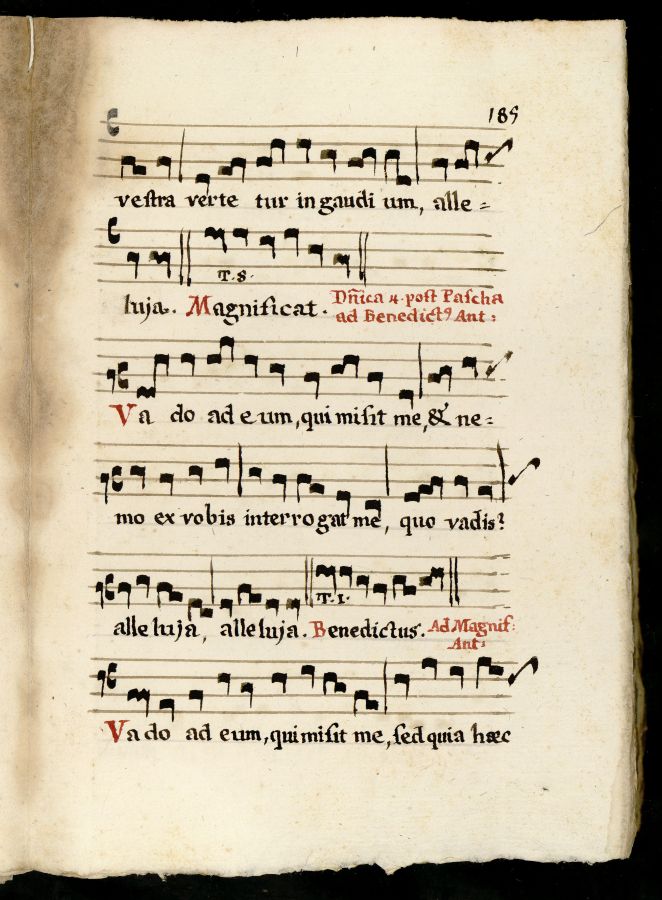 185
vestra verte tur in gaudi um, alle=
T. 8.
luja. Magnificat. Dñica 4. post Pascha
ad Benedictꝰ Ant:
Va do ad e um, qui misit me, & ne=
mo ex vobis interrogat me, quo vadis?
T. I.
alle luja, alle luja. Benedictus. Ad Magnif:
Ant:
Va do ad eum, qui misit me, sed quia hæc